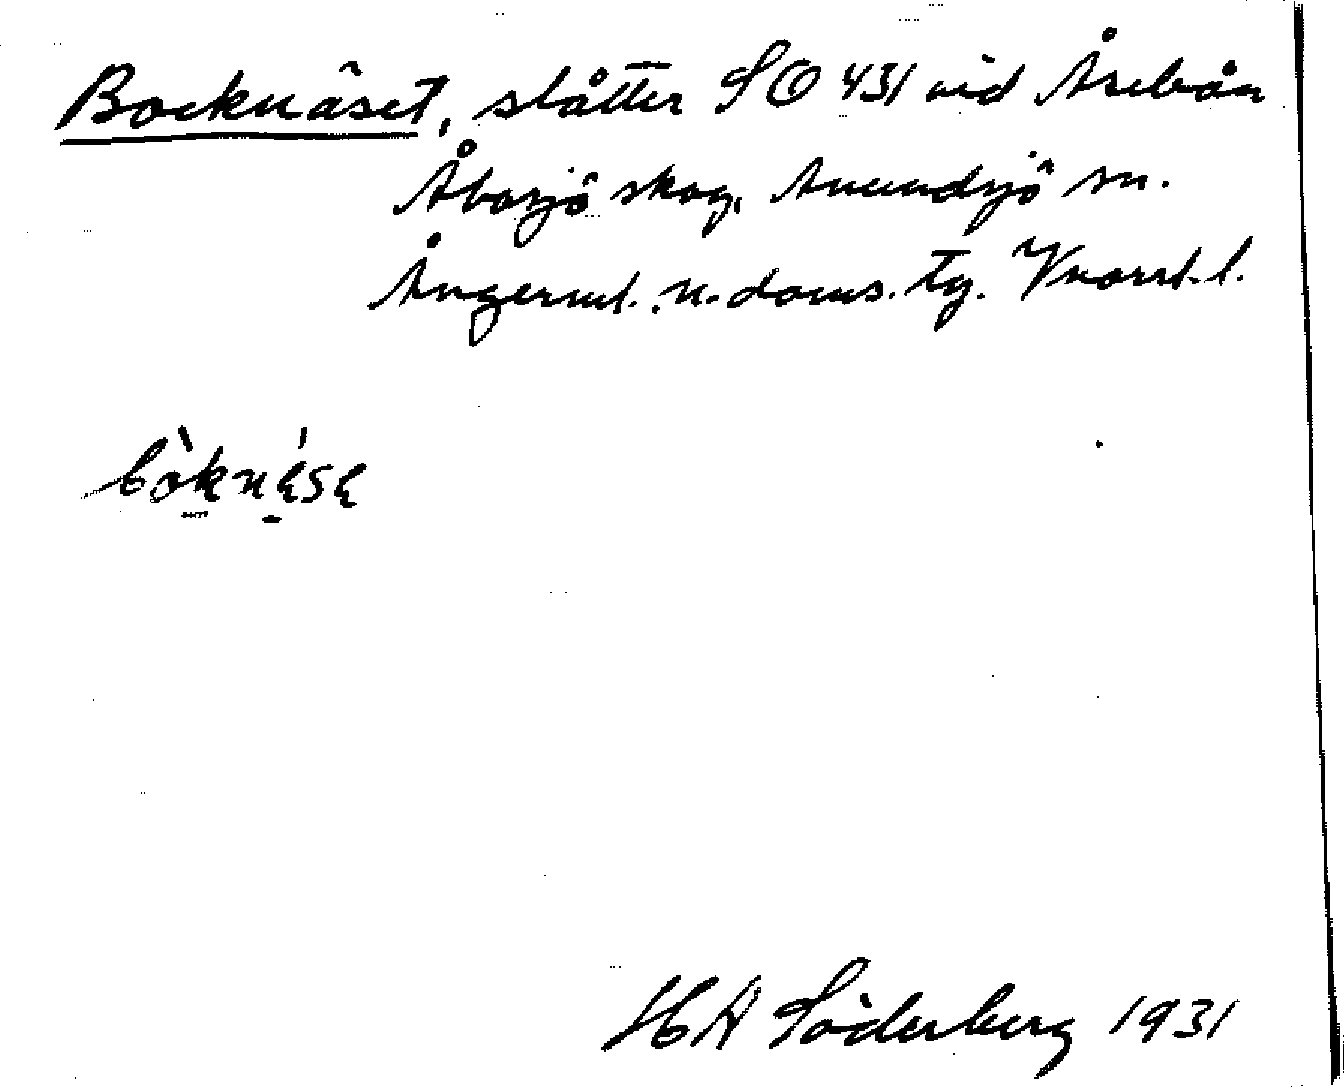 Bocknäset, slåtter SO 431 vid Åseleån
Åbosjö skog, Anundsjö sn.
Ångerml. n. doms. tg. Vnorrl. l.
bòknése
HA Söderberg 1931